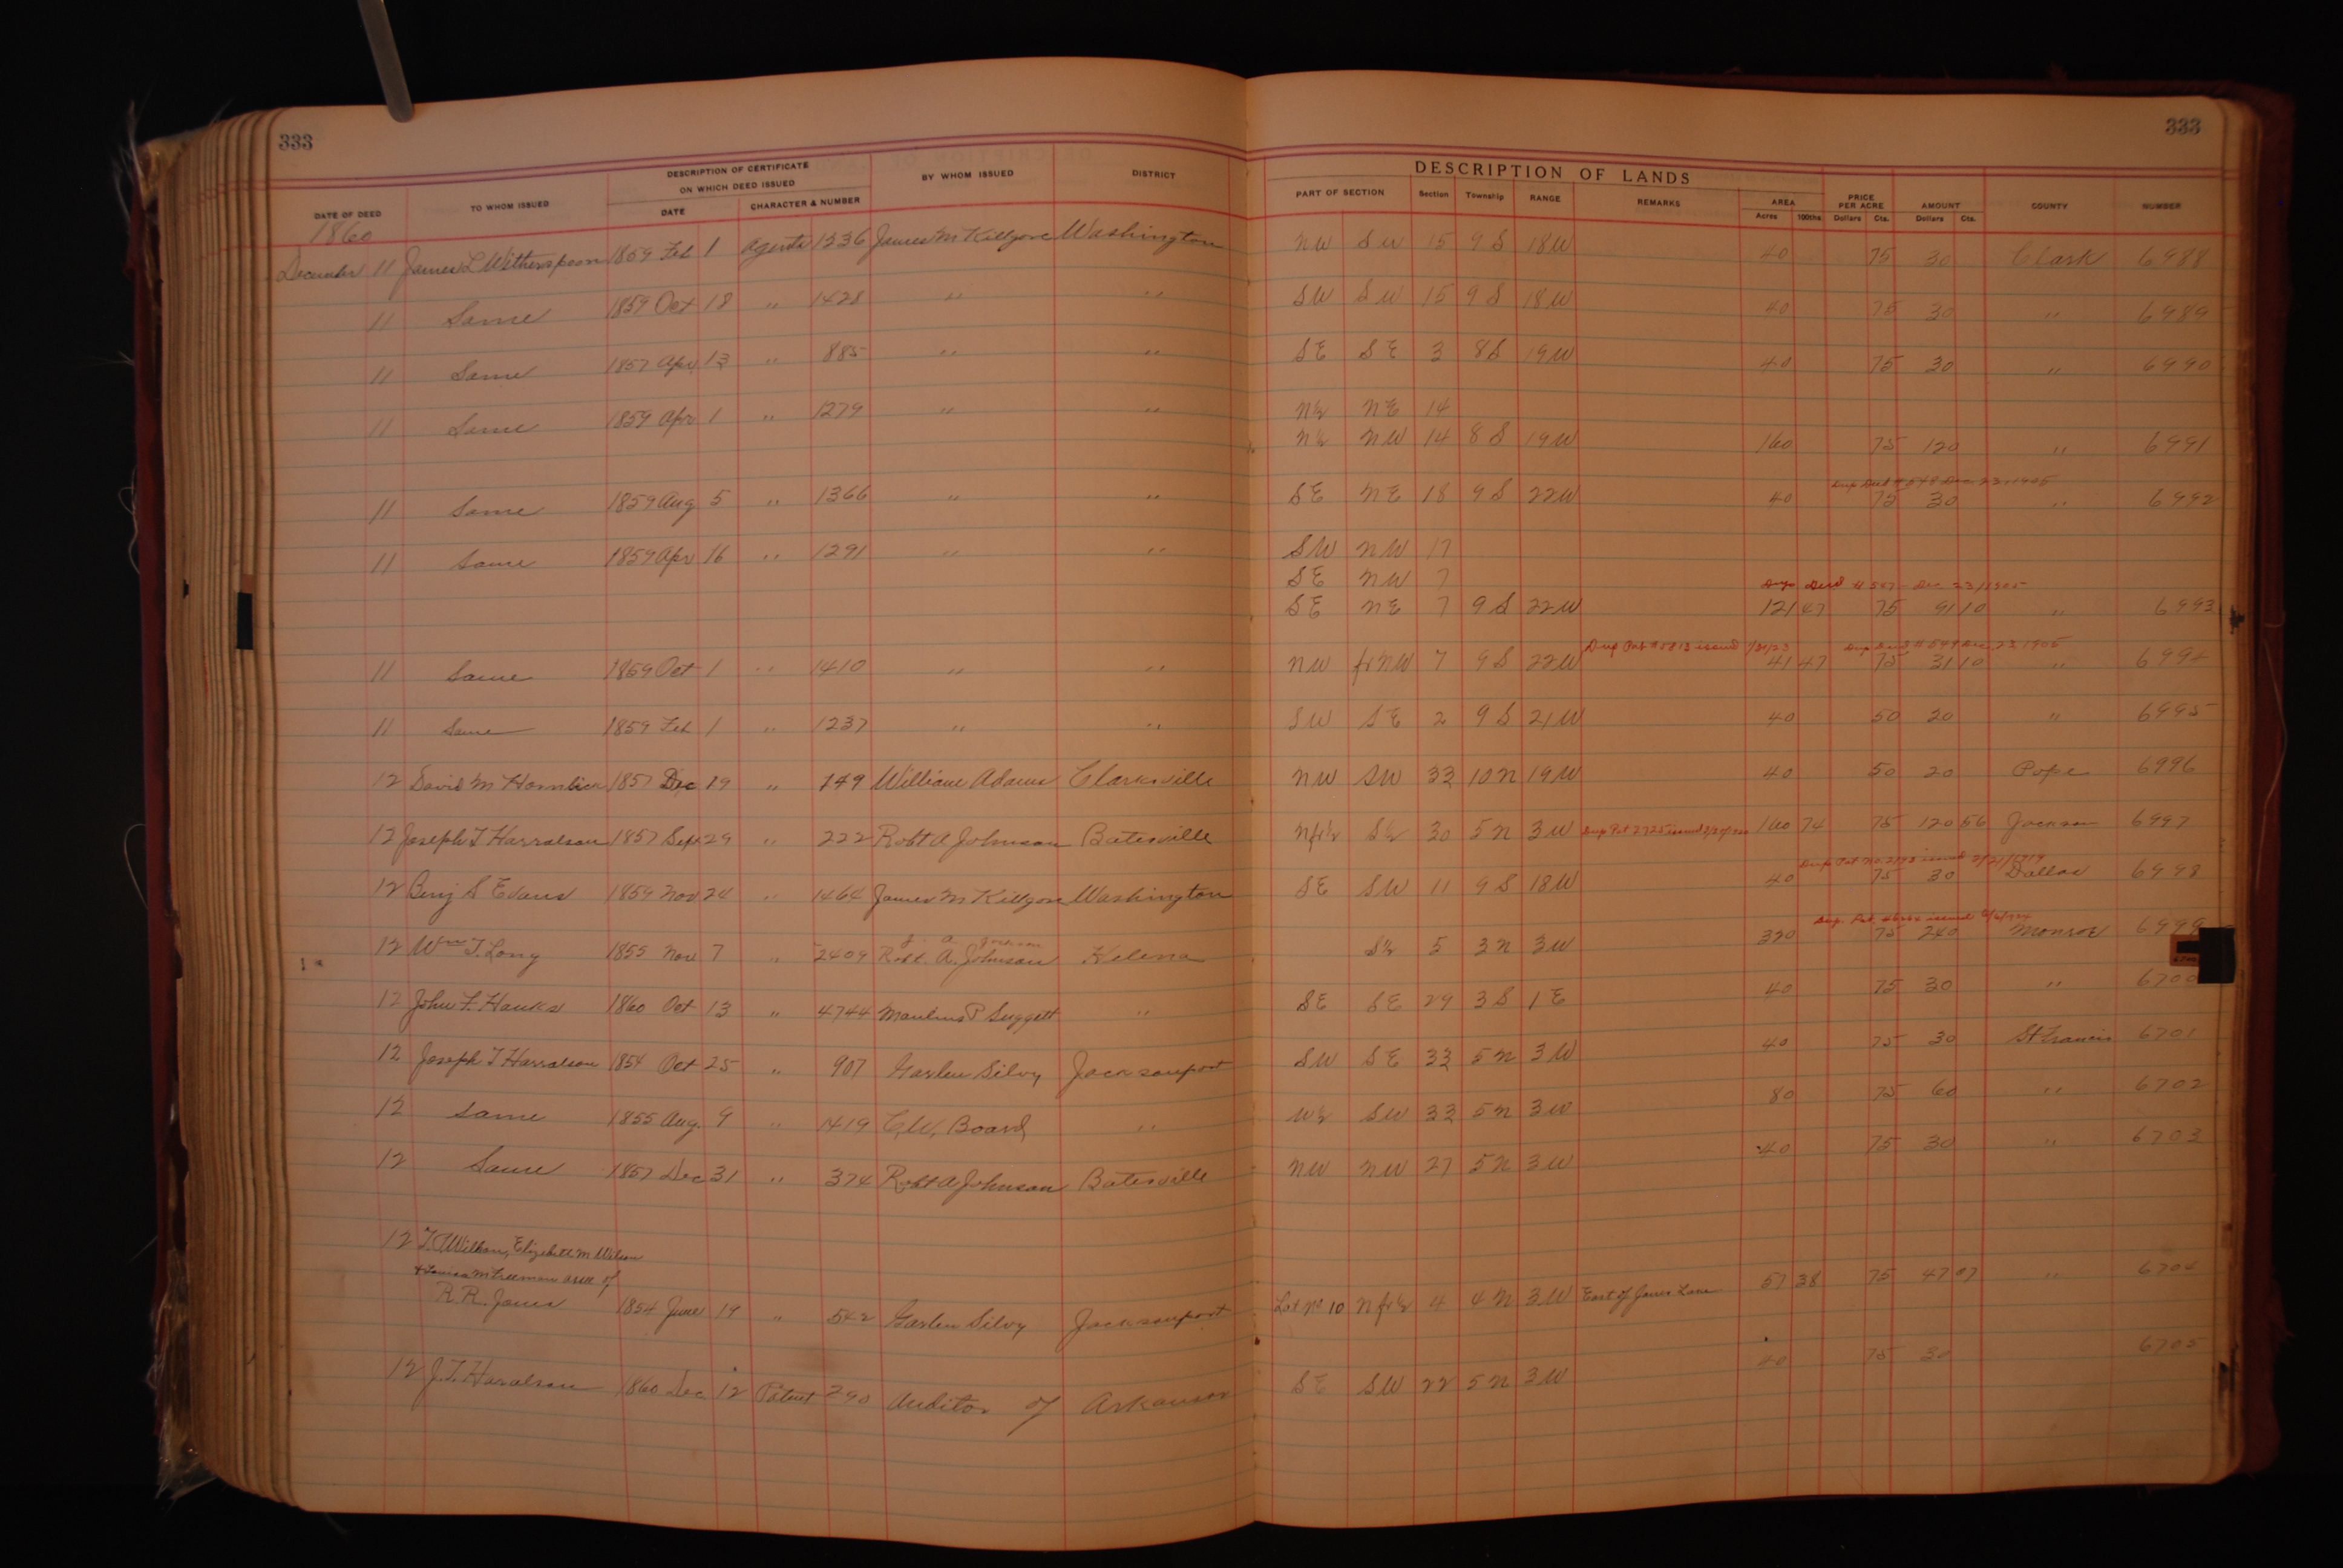 333 333
DESCRIPTION OF CERTIFICATE ON WHICH DEED ISSUED DESCRIPTION OF LANDS
DATE OF DEED TO WHOM ISSUED DATE CHARACTER & NUMBER BY WHOM ISSUED DISTRICT PART OF SECTION Section Township RANGE REMARKS AREA Acres 100ths PRICE PER ACRE Dollars Cts. AMOUNT Dollars Cts. COUNTY NUMBER
1860
December 11 James L Witherspoon 1859 Feb 1 Agents 1236 James M Killgore Washington NW SW 15 9 S 18 W 40 75 30 Clark 6988
11 Same 1859 Oct 18 " 1428 " " SW SW 15 9 S 18 W 40 75 30 " 6989
11 Same 1857 Apr 13 " 885 " " SE SE 3 8 S 19 W 40 75 30 " 6990
11 Same 1859 Apr 1 " 1279 " " N½ NE 14
N½ NW 14 8 S 19 W 160 75 120 " 6991
Dup Deed Dec 23 1905
11 Same 1859 Aug 5 " 1366 " " SE NE 18 9 S 22 W 40 75 30 " 6992
11 Same 1859 Apr 16 " 1291 " " SW NW 17
SE NW 7
Dup Deed # 557 Dec 23/1905
SE NE 7 9 S 22 W 121 47 75 91 10 " 6993
Dup Pat #5813 issued 1/31/23 Dup Deed Dec 23 1905
11 Same 1859 Oct 1 " 1410 " " NW fr NW 7 9 S 22 W 41 47 75 31 10 " 6994
11 Same 1859 Feb 1 " 1237 " " SW SE 2 9 S 21 W 40 50 20 " 6995
12 David M Hamlick 1857 Dec 19 " 149 William Adams Clarksville NW SW 33 10 N 19 W 40 50 20 Pope 6996
12 Joseph T Harralson 1857 Sept 29 " 222 Robt A Johnson Batesville N fr ½ S½ 30 5 N 3 W Dup Pat 2725 issued 160 74 75 120 56 Jackson 6997
Dup Pat No. 2193 issued 2/21/1919
12 Benj S Evans 1859 Nov 24 " 1464 James M Killgore Washington SE SW 11 9 S 18 W 40 75 30 Dallas 6998
Dup. Pat. issued
12 Wm T. Long 1855 Nov 7 " 2409 Robt. A. Johnson Helena S½ 5 3 N 3 W 320 75 240 Monroe 6999
12 John F. Hanks 1860 Oct 13 " 4744 Manlius P Suggett " SE SE 29 3 S 1 E 40 75 30 " 6700
12 Joseph T Harralson 1854 Oct 25 " 907 Garlen Silvy Jacksonport SW SE 33 5 N 3 W 40 75 30 St Francis 6701
12 Same 1855 Aug. 9 " 1419 C. W. Board " W½ SW 33 5 N 3 W 80 75 60 " 6702
12 Same 1857 Dec 31 " 374 Robt A Johnson Batesville NW NW 27 5 N 3 W 40 75 30 " 6703
12 Wilson, Elizabeth M Wilson
& Louisa M Freeman assee of
R. R. Jones 1854 June 19 " 542 Garlen Silvy Jacksonport Lot No 10 N fr ½ 4 4 N 3 W East of Jones Lane 57 38 75 47 07 " 6704
12 J. T. Haralson 1860 Dec 12 Patent 290 Auditor of Arkansas SE SW 22 5 N 3 W 40 75 30 6705